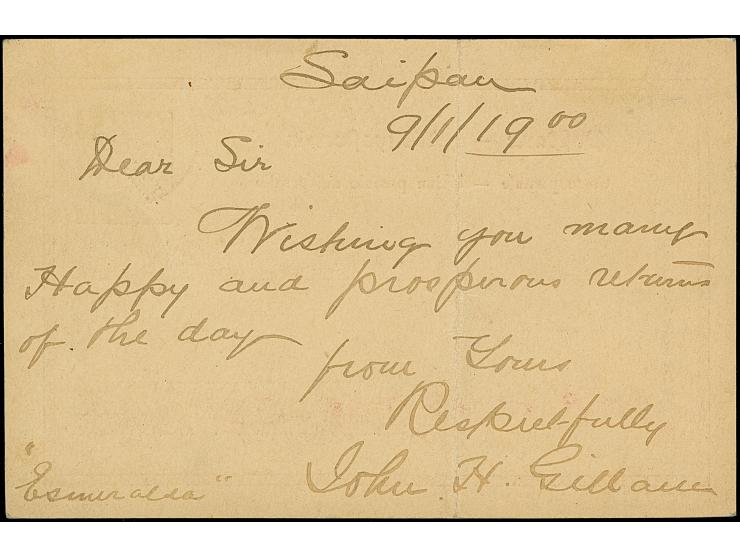 Saipan
9/1/19 00
Dear Sir
Wishing you many
Happy and prosperous returns
of the day
from Yours
Respectfully
John H. Gillam
"Esmeralda"